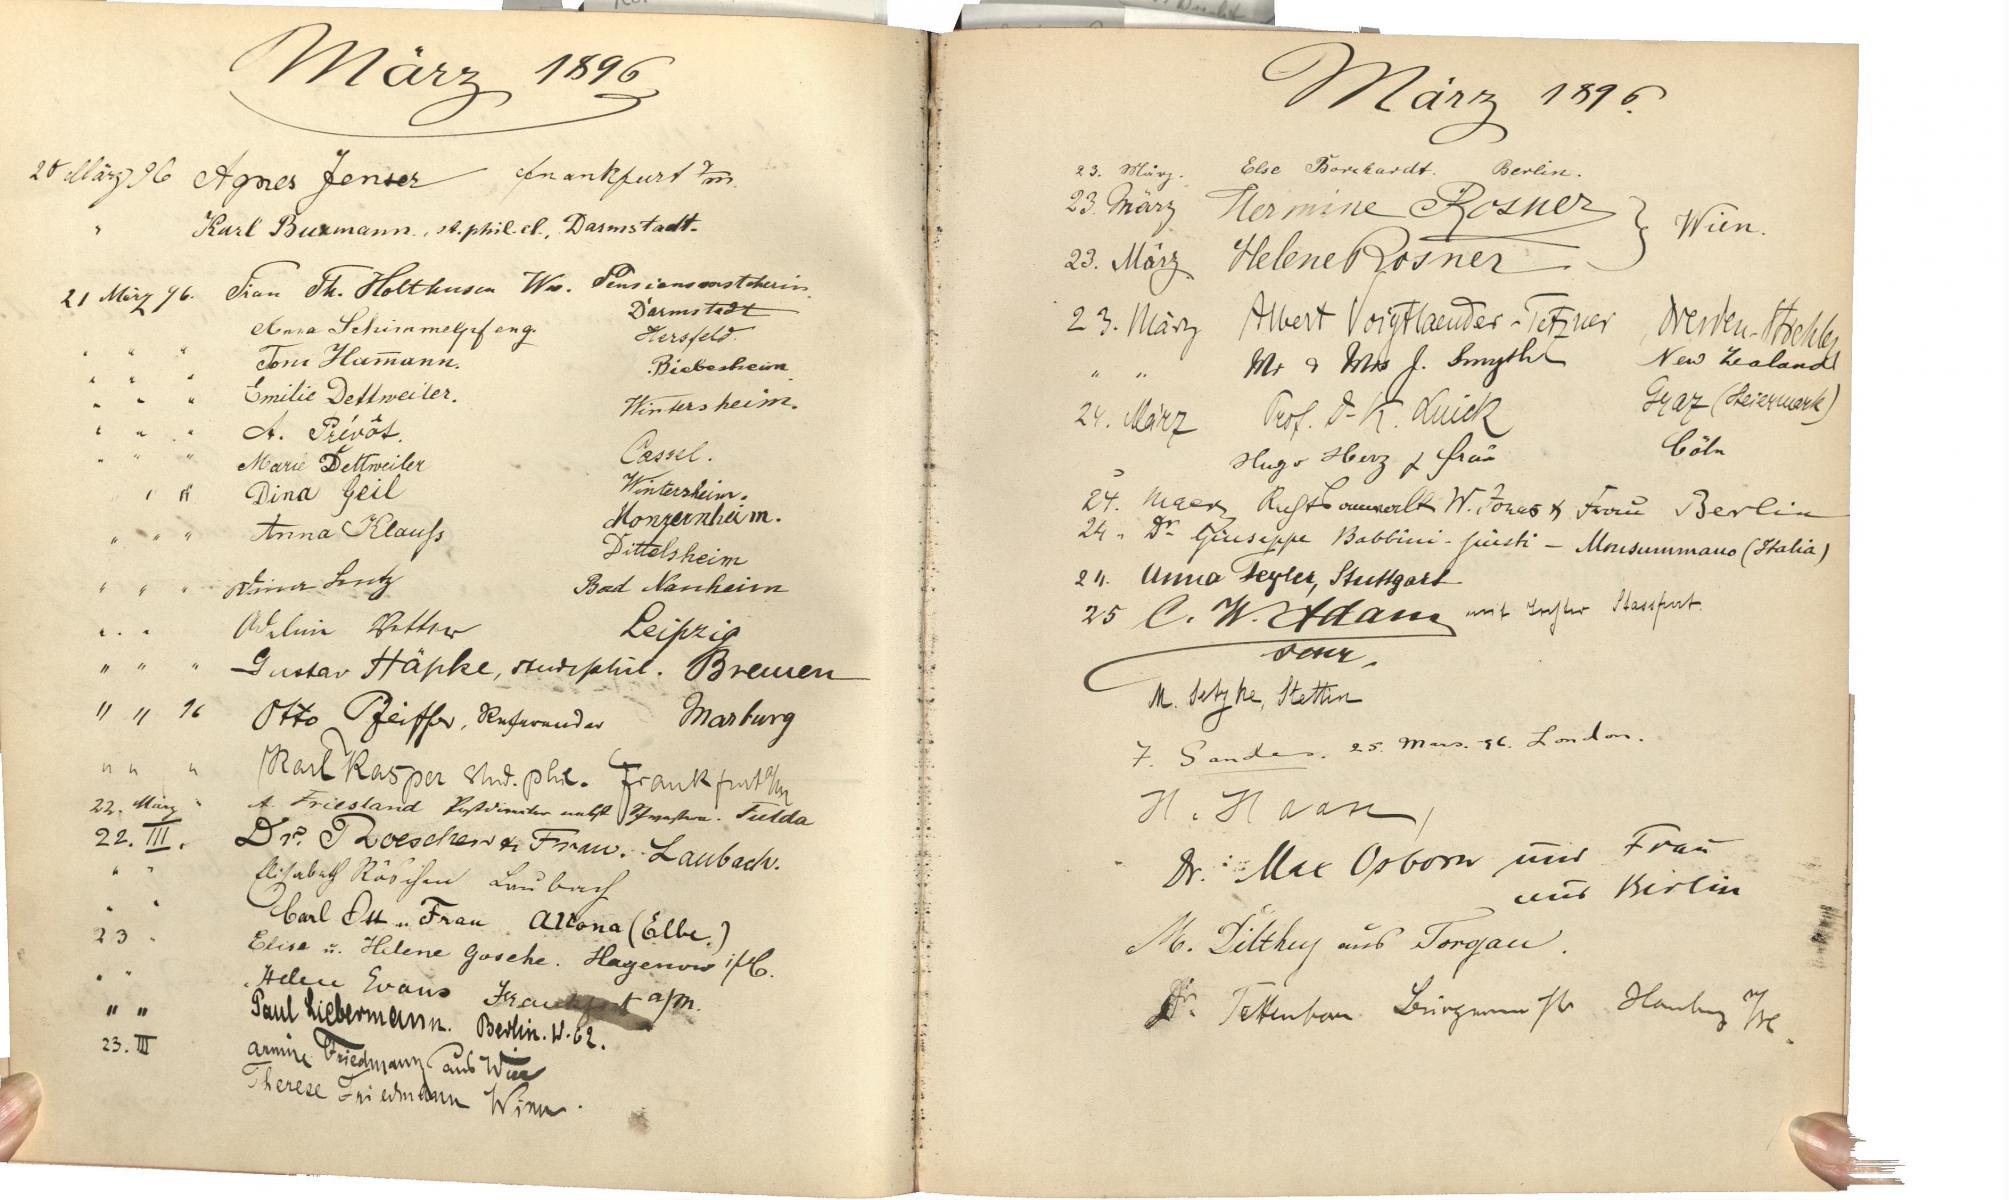 März 1896
20 März 96 Agnes Jenser Frankfurt a/m.
" Karl Buxmann, st. phil. cl., Darmstadt.
21 März 96. Frau Th. Holthusen Ww. Pensionsvorsteherin
Darmstadt
Anna Schimmelpfeng. Hersfeld.
" " " Toni Hamann. Biebesheim
" " " Emilie Dettweiler. Wintersheim.
" " " A. Prévôt. Cassel.
" " " Marie Dettweiler Wintersheim.
" " " Dina Geil Monzernheim.
" " Anna Klauss Dittelsheim
" " " Lentz Bad Nauheim
" " " Leipzig
" " " Gustav Häpke, stud. phil. Bremen
" " 96 Otto Pfeiffer, Referendar Marburg
" " " Karl Kasper stud. phil. Frankfurt a/M
22. März " A. Friesland Postdirektor nebst Schwester. Fulda
22. III. Dr. Roeschen & Frau. Laubach.
" " Elisabeth Röschen Laubach
" " Carl Ott u. Frau Altona (Elbe.)
23 " Elise u. Helene Gosche. Hagenow i/M.
" " Helen Evans Frankfort a/m.
" " Paul Liebermann. Berlin. W. 62.
23. III Armine Friedmann aus Wien
Therese Friedmann Wien.
März 1896.
23. März. Else Borchardt. Berlin.
23. März Hermine Rosner } Wien.
23. März Helene Rosner
23. März Albert Voigtlaender-Tetzner Dresden-Strehlen
" " Mr & Mrs J. Smyth New Zealand
24. März Prof. Dr K. Luick Graz (Steiermark)
Hugo Herz & Frau Cöln
24. Maerz Rechtsanwalt W. Jonas & Frau Berlin
24. " Dr Giuseppe Babbini-Giusti – Monsummano (Italia)
24. Anna Stuttgart
25 C. W. Adam mit Tochter Stassfurt
M. Stettin
F. Sandes. 25. Mars. 96. London.
H. Haan
Dr. Max Osborn und Frau
aus Berlin
M. Dilthey aus Torgau.
Dr. Tettenborn Bürgermeister Homburg